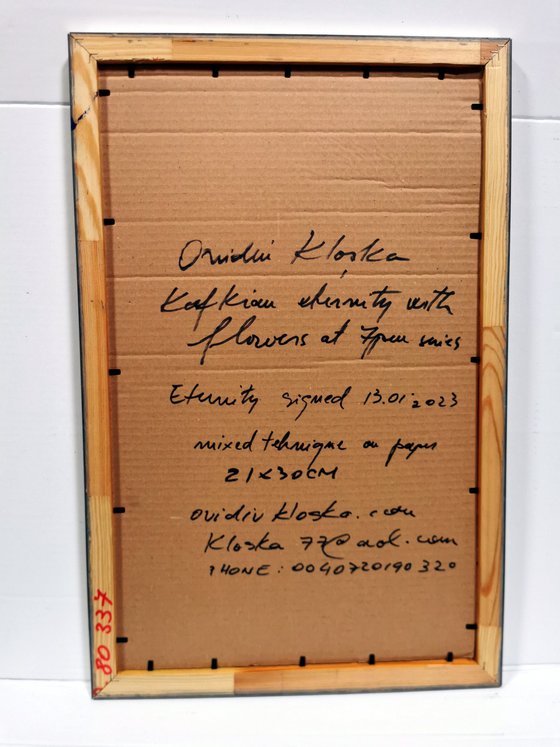 Ovidiu Kloska
Kafkian eternity with
flowers at 7pm series
Eternity signed 13.01.2023
mixed tehnique on paper
21x30CM
ovidiu kloska.com
Kloska 77@aol.com
PHONE: 0040720190320
80 337